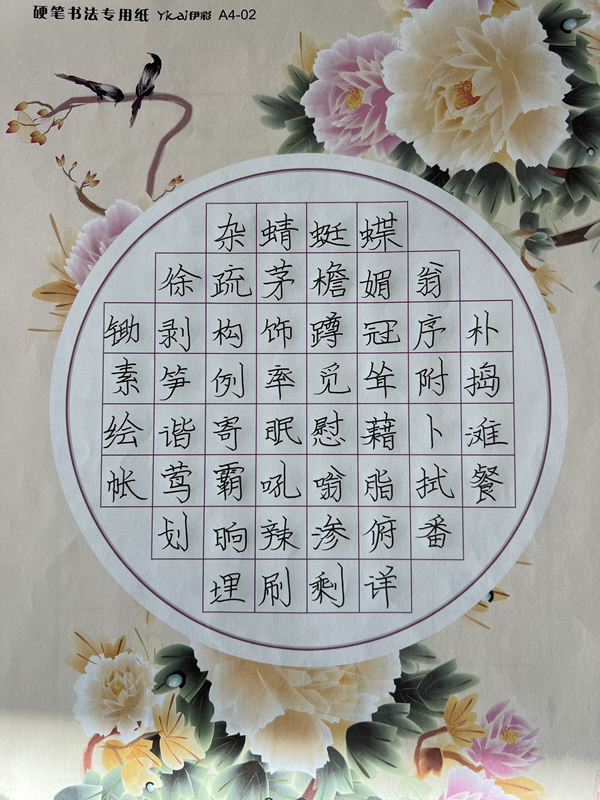 硬笔书法专用纸 Yicai伊彩 A4-02
杂蜻蜓蝶
徐疏茅檐媚翁
锄剥构饰蹲冠序朴
素笋例率觅耸附捣
绘谐寄眠慰藉卜滩
帐莺霸吼嗡脂拭餐
划晌辣渗俯番
埋刷剩详